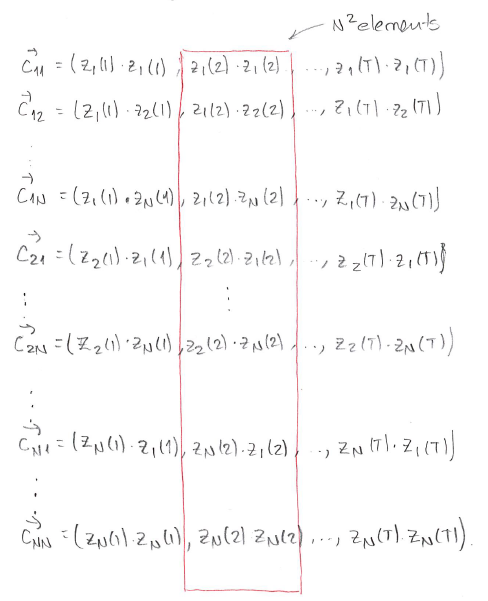 N² elements
C⃗₁₁ = (z₁(1) · z₁(1), z₁(2) · z₁(2), ..., z₁(T) · z₁(T))
C⃗₁₂ = (z₁(1) · z₂(1), z₁(2) · z₂(2), ..., z₁(T) · z₂(T))
⋮
C⃗₁N = (z₁(1) · zN(1), z₁(2) · zN(2), ..., z₁(T) · zN(T))
C⃗₂₁ = (z₂(1) · z₁(1), z₂(2) · z₁(2), ..., z₂(T) · z₁(T))
⋮ ⋮
C⃗₂N = (z₂(1) · zN(1), z₂(2) · zN(2), ..., z₂(T) · zN(T))
⋮
C⃗N₁ = (zN(1) · z₁(1), zN(2) · z₁(2), ..., zN(T) · z₁(T))
⋮
C⃗NN = (zN(1) · zN(1), zN(2) zN(2), ..., zN(T) · zN(T)).